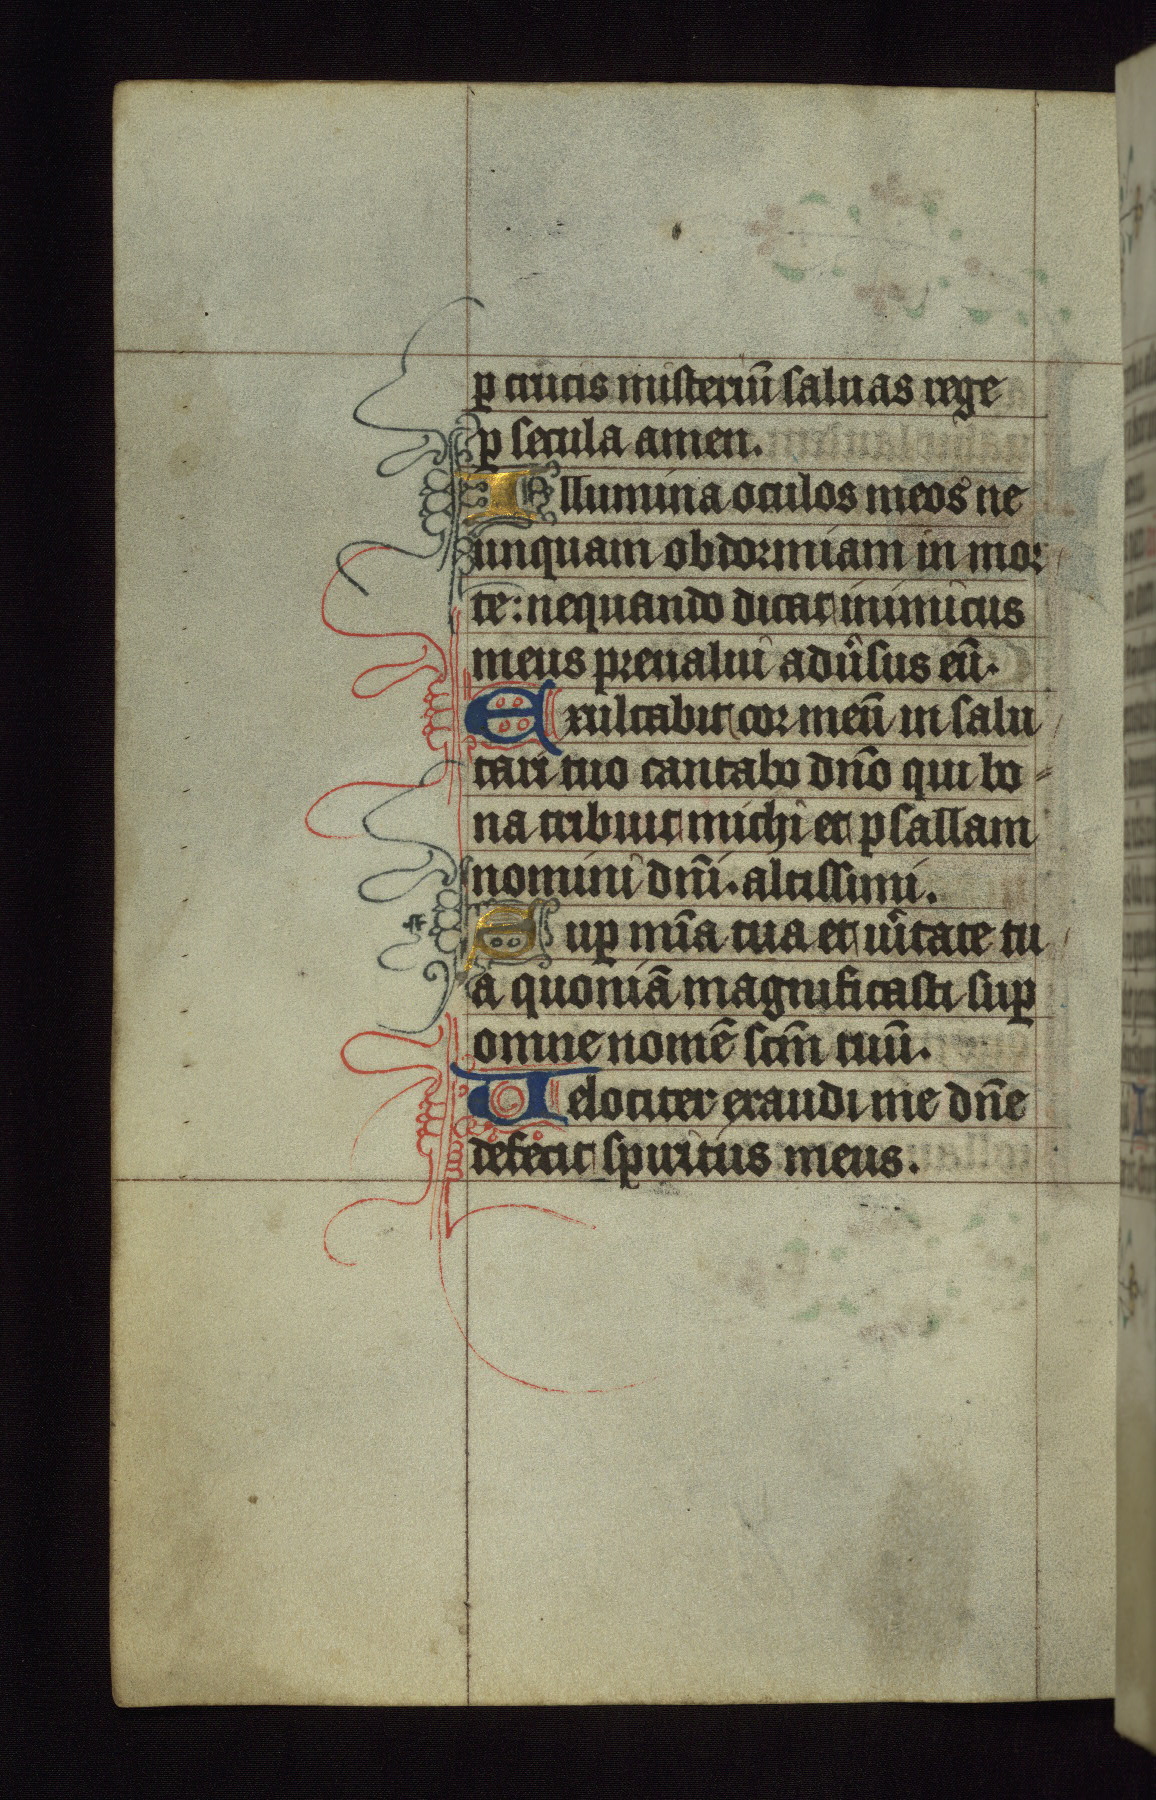 p̱ crucis misteriū saluas rege
p̱ secula amen.
Illumina oculos meos ne
unquam obdormiam in mor
te: nequando dicat inimicus
meus preualui adūsus eū.
Exultabit cor meū in salu
tari tuo cantabo dn̄o qui bo
na tribuit michi et psallam
nomini dn̄i. altissimi.
Sup̱ mīa tua et uītate tu
a quoniā magnificasti sup̱
omne nomē scm̄ tuū.
Uelociter exaudi me dn̄e
defecit spiritus meus.